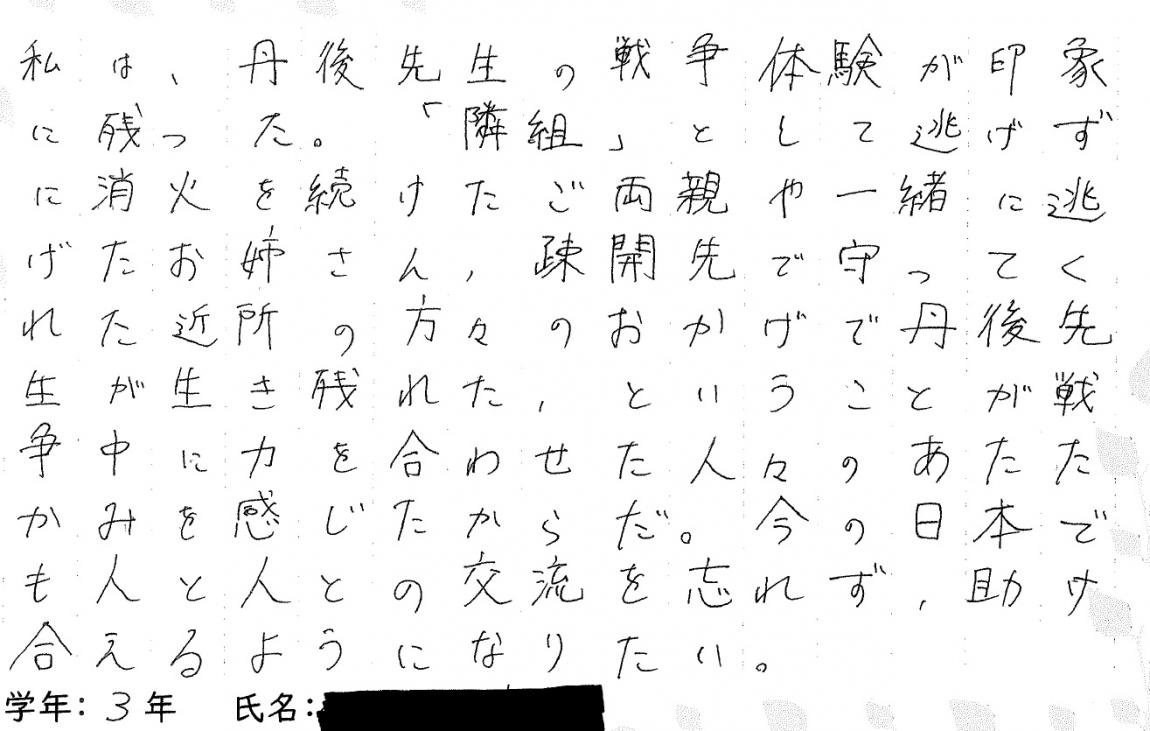 私は、丹後先生の戦争体験が印象
に残った。「隣組」として逃げず
に消火を続けたご両親や一緒に逃
げたお姉さん、疎開先で守ってく
れた近所の方々のおかげで丹後先
生が生き残れた、ということが戦
争中に力を合わせた人々のあたた
かみを感じたからだ。今の日本で
も人と人との交流を忘れず、助け
合えるようになりたい。
学年：3年　氏名：